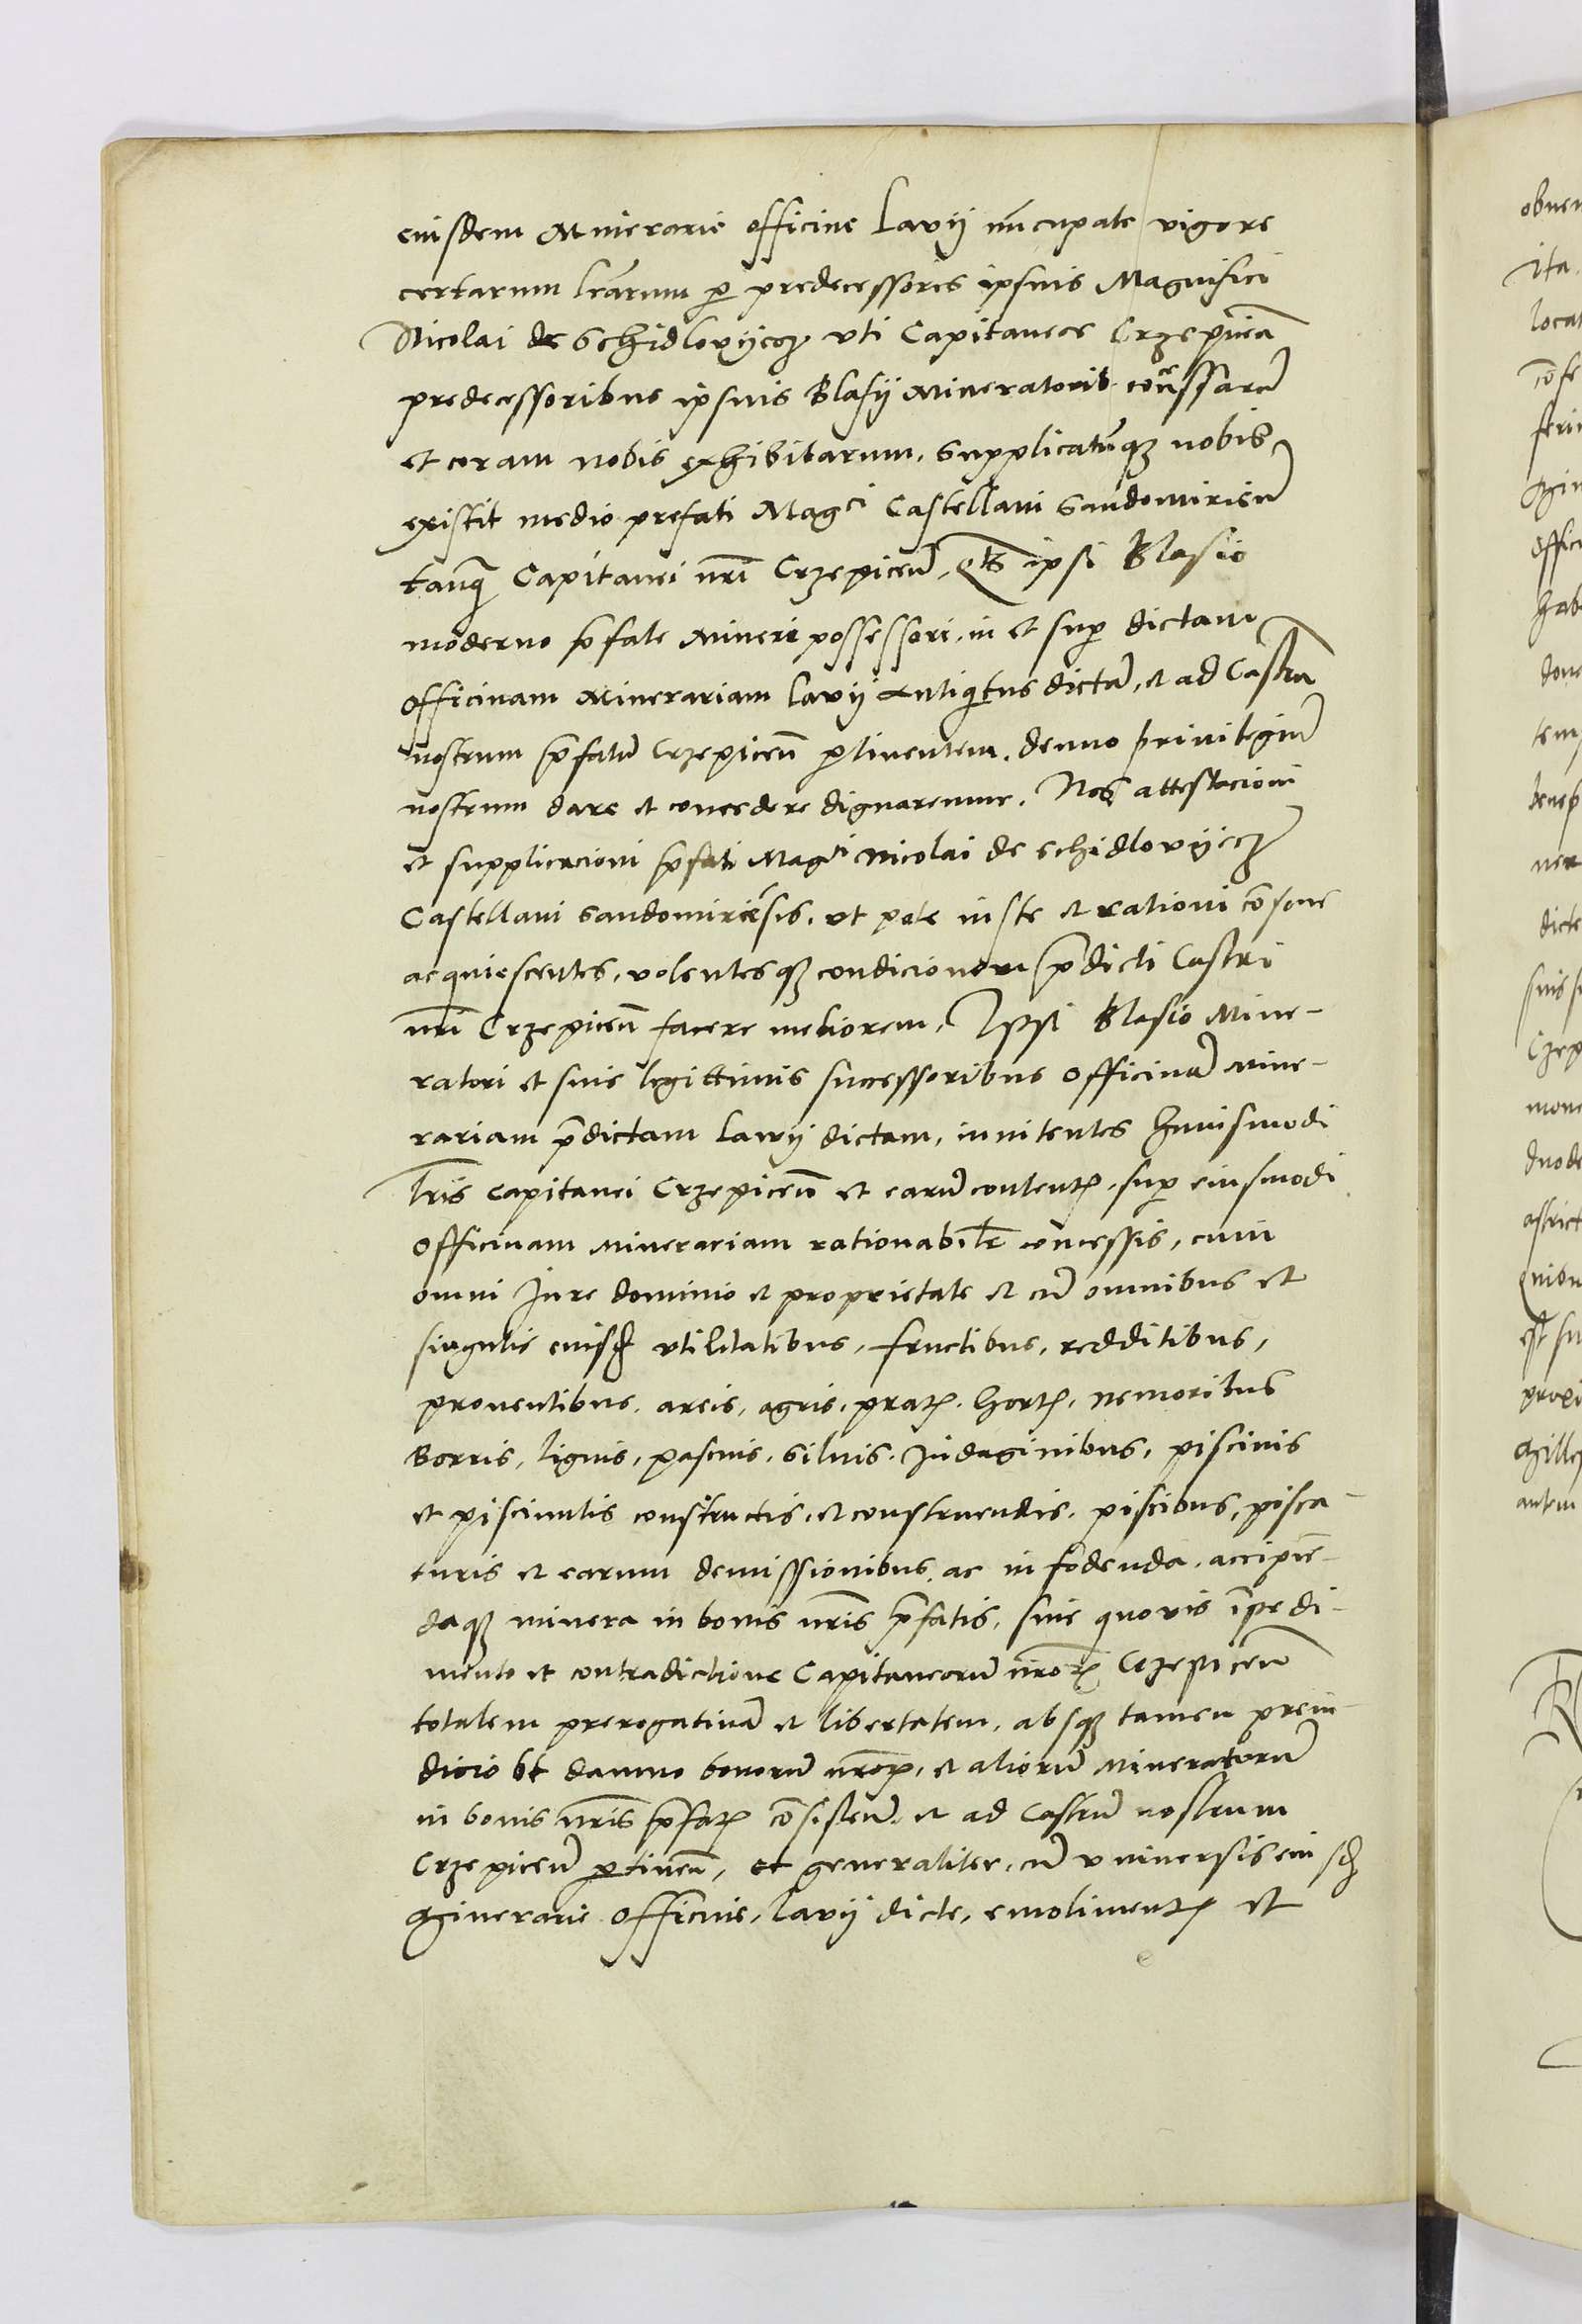 eiusdem Minerarie officine Lavij nūcupate vigore
certarum lrārum p predecessores ipsius Magnifici
Nicolai de Schidlovijecz vti Capitaneos Crzepiceñ
predecessoribus ipsius Blasij Mineratorib concessarū
et coram nobis exhibitarum, supplicatūqz nobis
existit medio prefati Magci Castellani Sandomirieñ
tanq Capitanei nri Crzepiceñ, qts ipsi Blasio
moderno pfate Minere possessori, in et sup dictam
officinam Minerariam Lavij Antiqtus dictā, et ad Castrū
nostrum pfatū Crzepiceñ ptinentem, denuo priuilegiū
nostrum dare et concedere dignaremur. Nos attestacioni
et supplicacioni pfati Magci Nicolai de Schidlovijecz
Castellani Sandomiriēsis, vt pote iuste et rationi cōsone
acquiescentes, volentesqz condicionem pdicti Castri
nri Crzepiceñ facere meliorem, Ipsi Blasio Mine-
ratori et suis legittimis successoribus officinā Mine-
rariam pdictam Lawij dictam, innitentes huiusmodi
lris Capitanei Crzepiceñ et earū contentꝭ, sup eiusmodi
officinam minerariam rationabilr concessis, cum
omni Iure dominio et proprietate et cū omnibus et
singulis eiusd vtilitatibus, fructibus, redditibus,
prouentibus, areis, agris, pratꝭ, hortꝭ, nemoribus
Borris, lignis, pascuis, siluis, Indaginibus, piscinis
et piscinulis constructis, et construendis, piscibus, pisca-
turis et earum demissionibus, ac in fodenda, accipiē-
daqz minera in bonis nris pfatis, sine quovis īpedi-
mento et contradictione Capitaneorū nrorꝝ Crzepiceñ
totalem prerogatiuā et libertatem, absqz tamen preiu-
dicio et damno bonorū nrorꝝ, et aliorū Mineratorū
in bonis nris pfatꝭ cōsisteñ, et ad Castrū nostrum
Crzepiceñ ptineñ, et generaliter, cū vniuersis eiusd
Minerarie officine, Lavij dicte, emolimentꝭ et